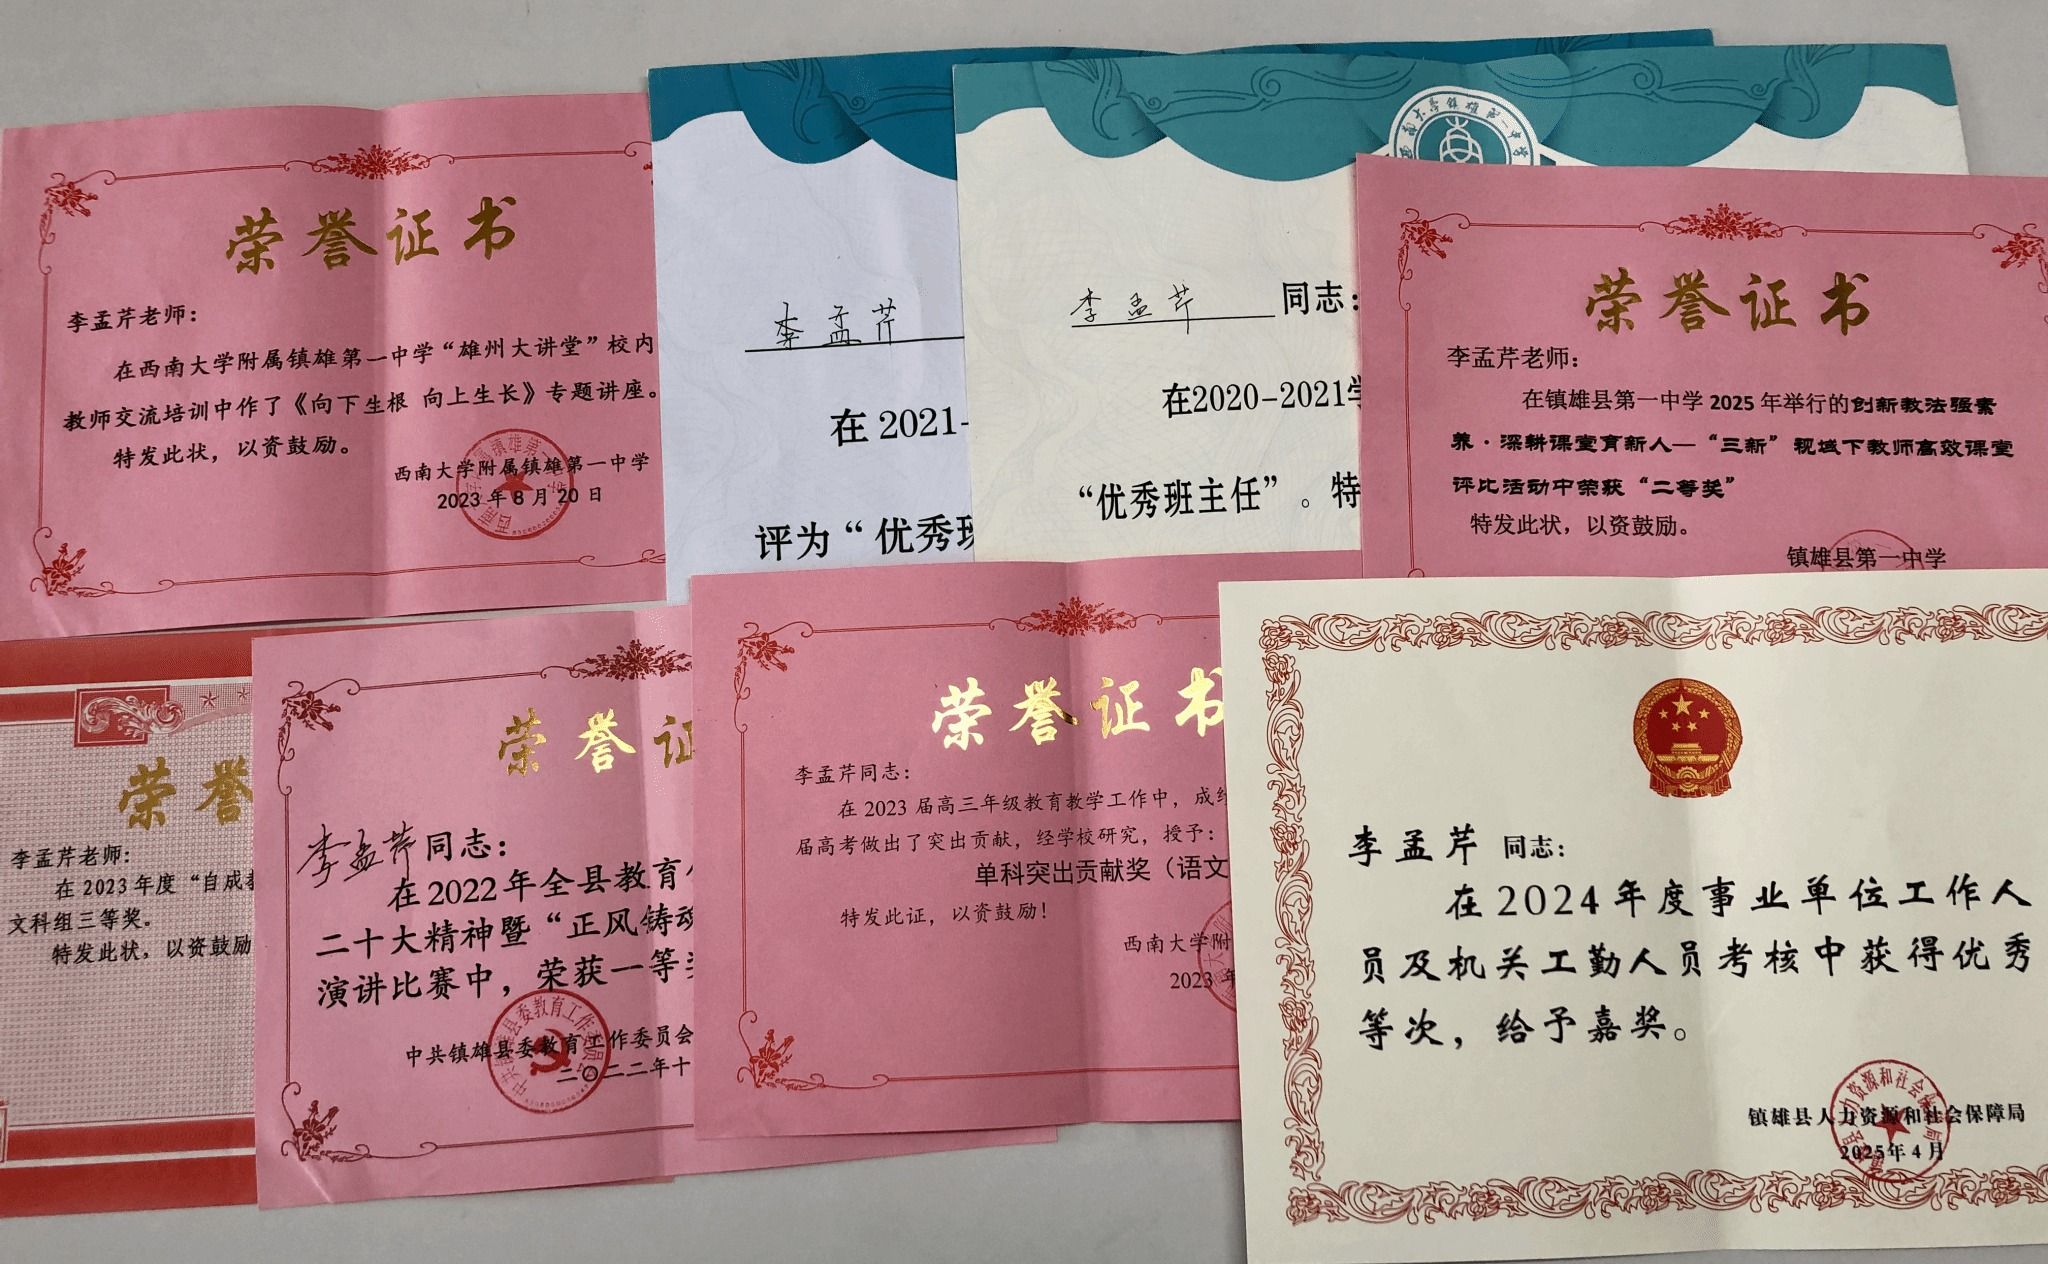 荣誉证书
李孟芹老师：
在西南大学附属镇雄第一中学“雄州大讲堂”校内
教师交流培训中作了《向下生根 向上生长》专题讲座。
特发此状，以资鼓励。
西南大学附属镇雄第一中学
2023年8月20日
李孟芹
在 2021-
评为“优秀班
李孟芹 同志：
在2020-2021学
“优秀班主任”。特
荣誉证书
李孟芹老师：
在镇雄县第一中学 2025 年举行的创新教法强素
养·深耕课堂育新人—“三新”视域下教师高效课堂
评比活动中荣获“二等奖”
特发此状，以资鼓励。
镇雄县第一中学
荣誉
李孟芹老师：
在 2023 年度“自成
文科组三等奖。
特发此状，以资鼓励
荣誉证
李孟芹同志：
在2022年全县教育
二十大精神暨“正风铸魂
演讲比赛中，荣获一等奖
中共镇雄县委教育工作委员会
二〇二二年十
荣誉证书
李孟芹同志：
在 2023 届高三年级教育教学工作中，成绩
届高考做出了突出贡献，经学校研究，授予：
单科突出贡献奖（语文
特发此证，以资鼓励！
西南大学附
2023 年
李孟芹 同志：
在2024年度事业单位工作人
员及机关工勤人员考核中获得优秀
等次，给予嘉奖。
镇雄县人力资源和社会保障局
2025年4月